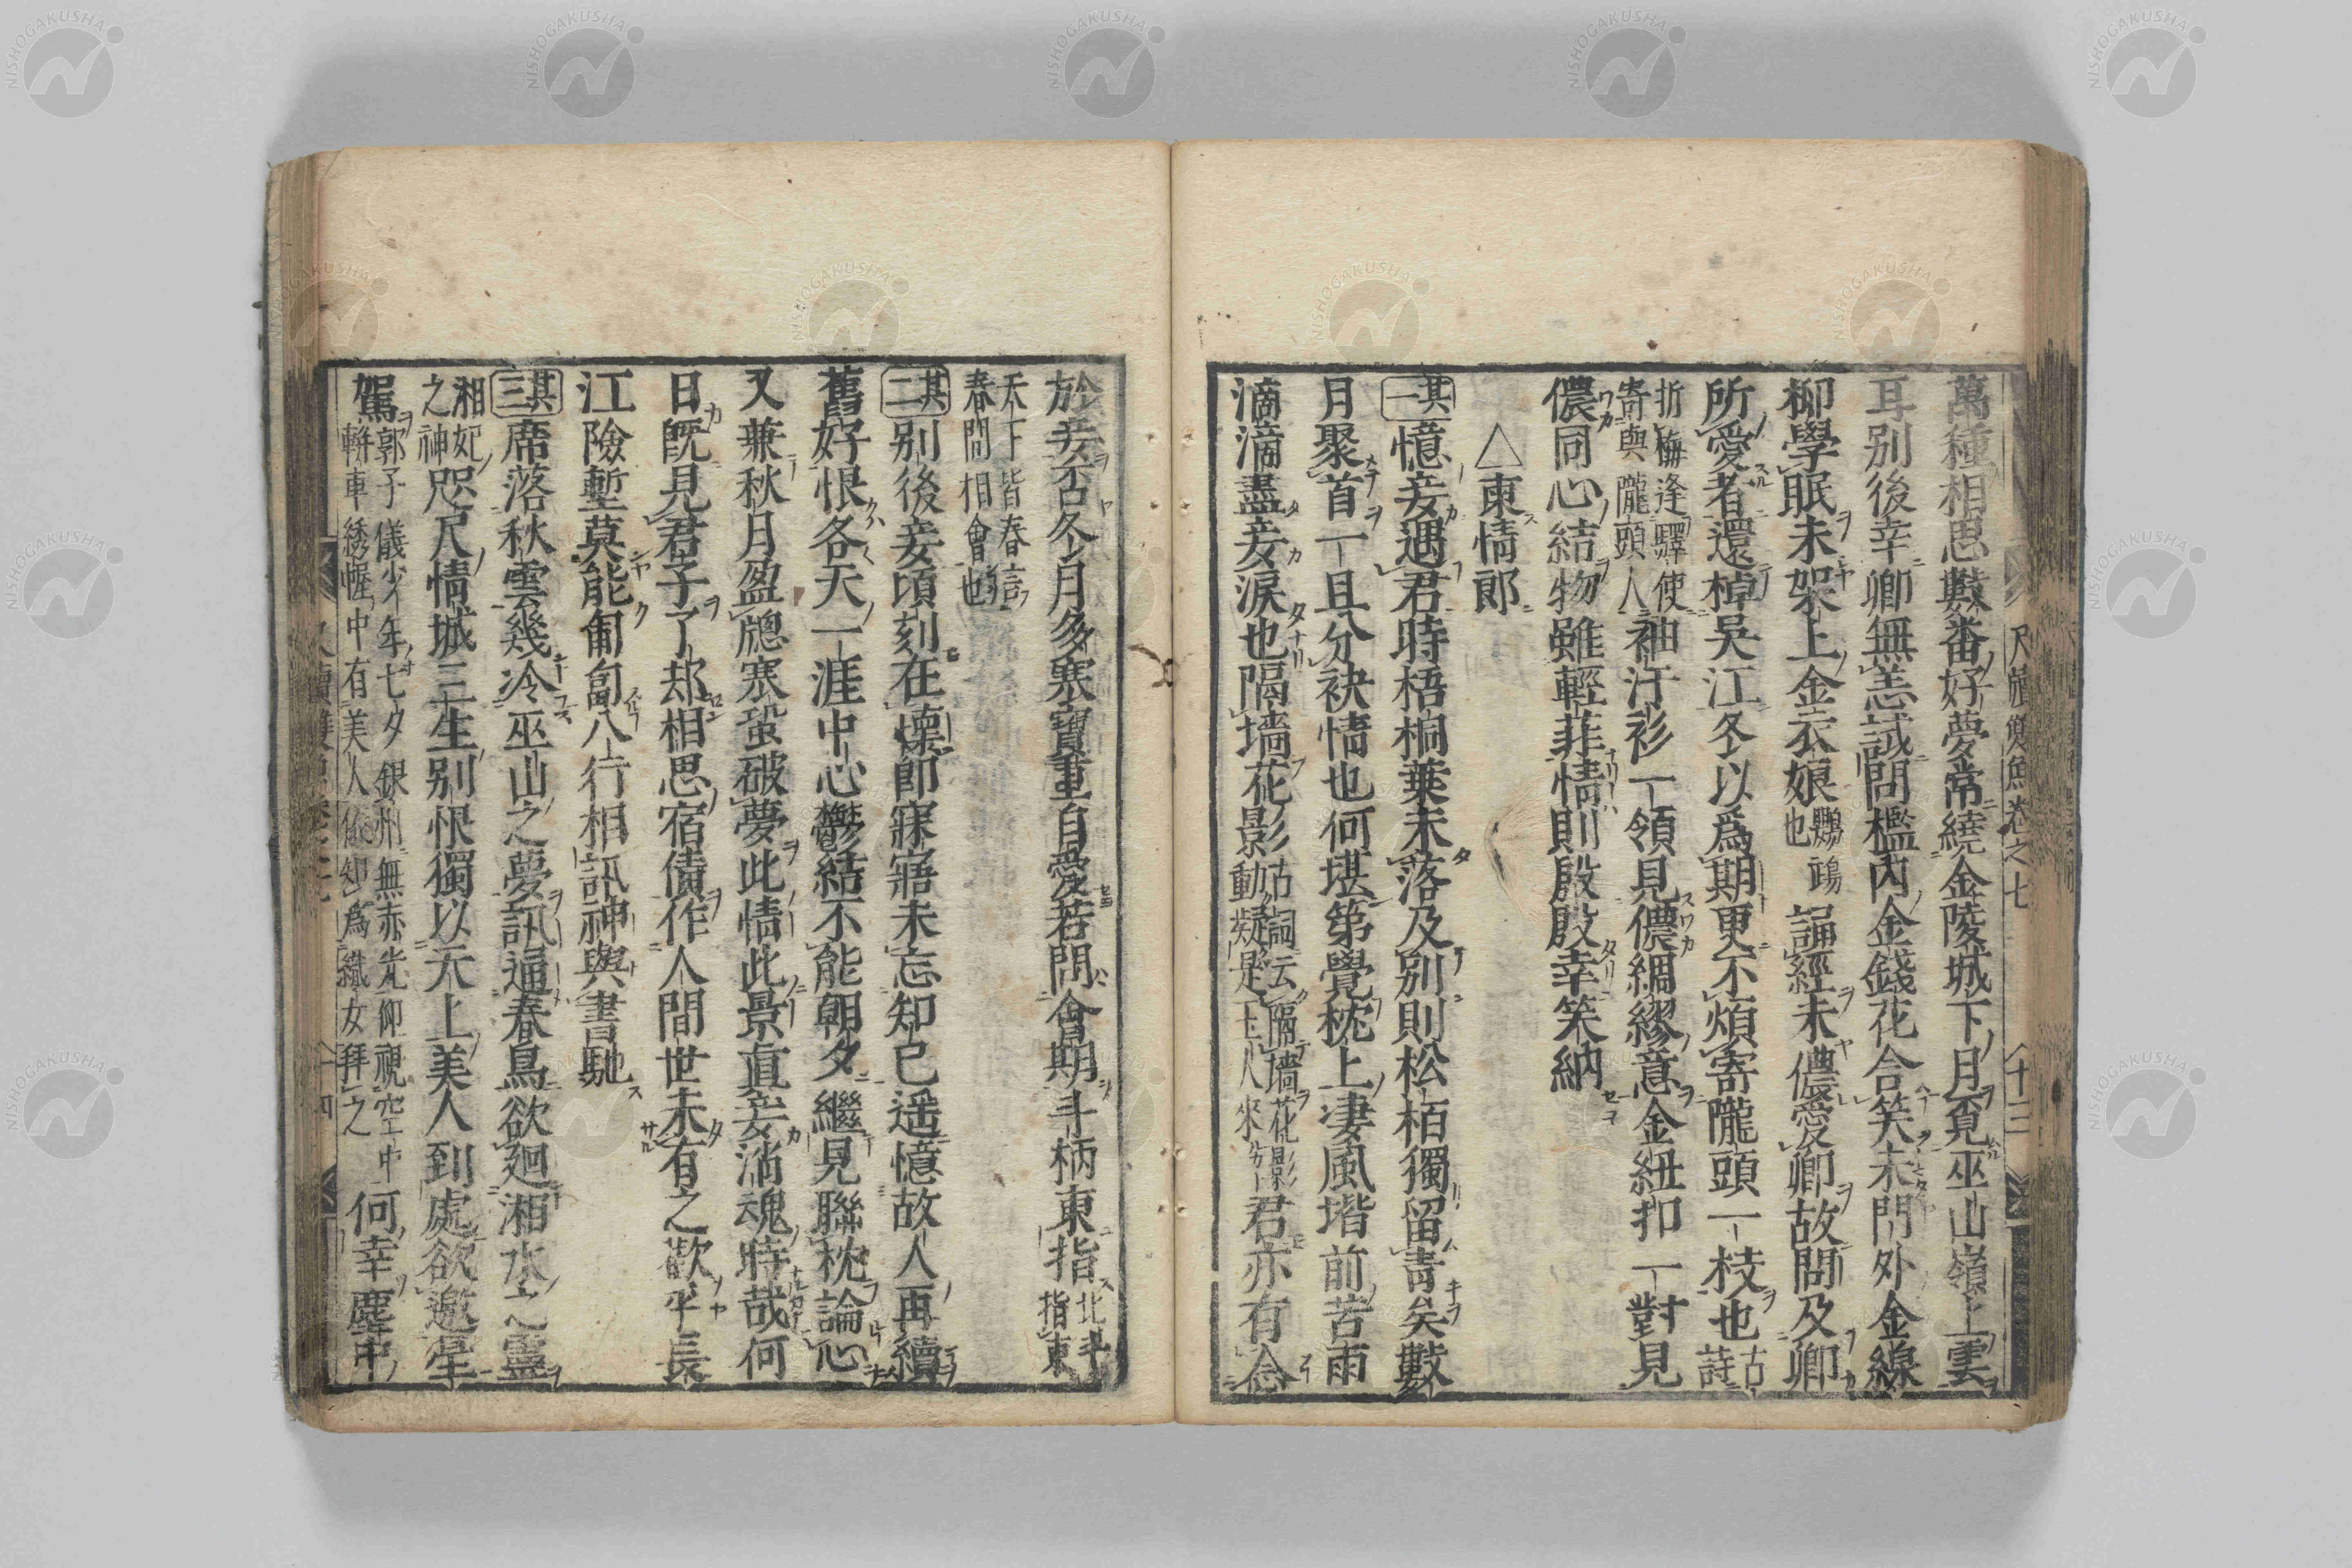 尺牘雙魚卷之七 十三
萬種相思數番好夢常繞金陵城下月覓巫山嶺上雲
耳別後幸卿無恙試問檻內金錢花合笑未門外金線
柳學眠未架上金衣娘鸚鵡也誦經未儂愛卿故問及卿
所愛者還棹吳江冬以爲期更不煩寄隴頭一枝也古詩
折梅逢驛使寄與隴頭人袖汗衫一領見儂綢繆意金紐扣一對見
儂同心結物雖輕菲情則殷殷幸笑納
△柬情郎
其一憶妾遇君時梧桐葉未落及別則松栢獨留靑矣數
月聚首一旦分袂情也何堪第覺枕上凄風堦前苦雨
滴滴盡妾淚也隔墻花影動古詞云隔墻花影動疑是玉人來君亦有念
於妾否冬月多寒寶重自愛若問會期斗柄東指北斗指東
天下皆春言春間相會也
其二別後妾頃刻在懐卽寐寤未忘知已遥憶故人再續
舊好恨各天一涯中心鬱結不能朝夕繼見聯枕論心
又兼秋月盈牕寒蛩破夢此情此景直妾淌魂時哉何
日旣見君子了却相思宿債作人間世未有之歡乎長
江險塹莫能匍匐八行相訊神與書馳
其三席落秋雲幾冷巫山之夢訊通春鳥欲廻湘水之靈
湘妃之神咫尺情城三生別恨獨以天上美人到處欲邀星
駕郭子儀少年七夕銀州無赤光仰視空中輧車綉幄中有美人儀知爲織女拜之何幸塵中
十四